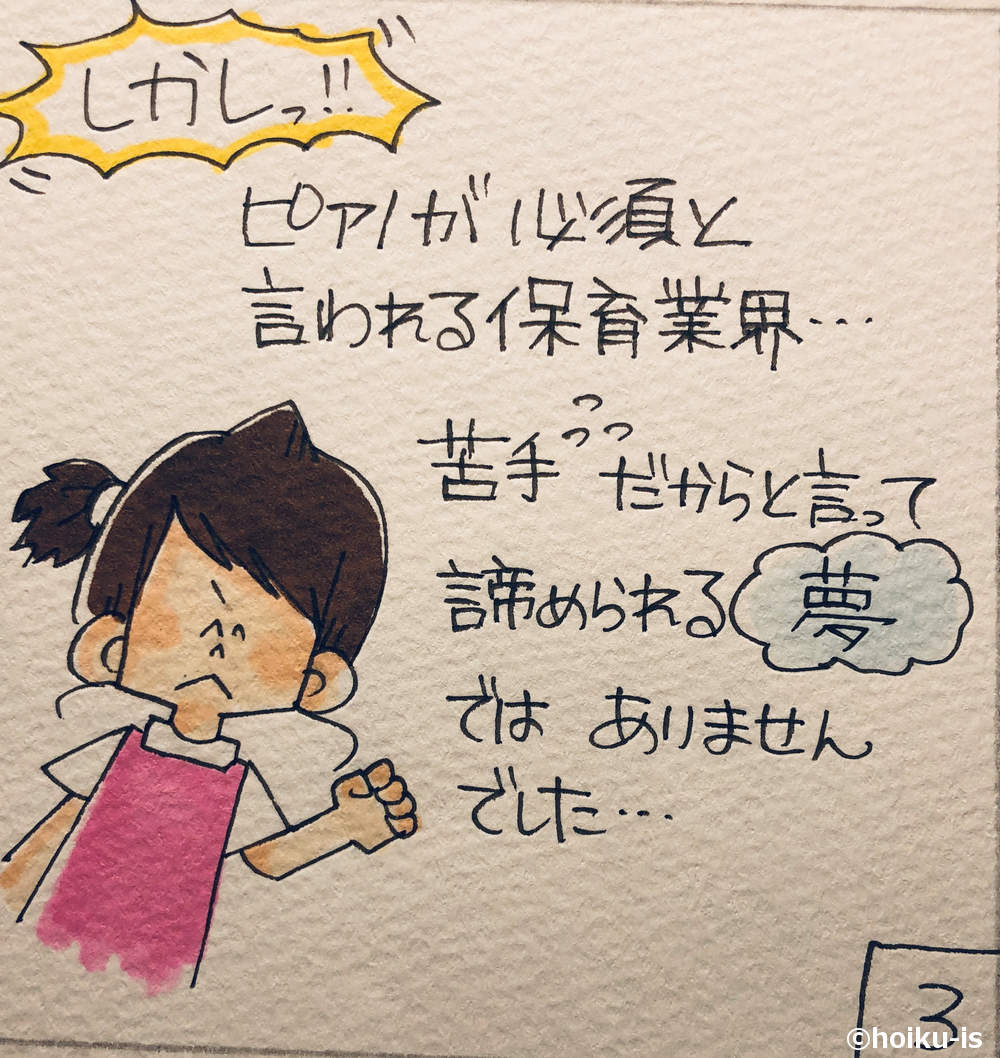 しかしっ!!
ピアノが必須と
言われる保育業界…
苦手だからと言って
諦められる夢
では ありません
でした…
3
©hoiku-is